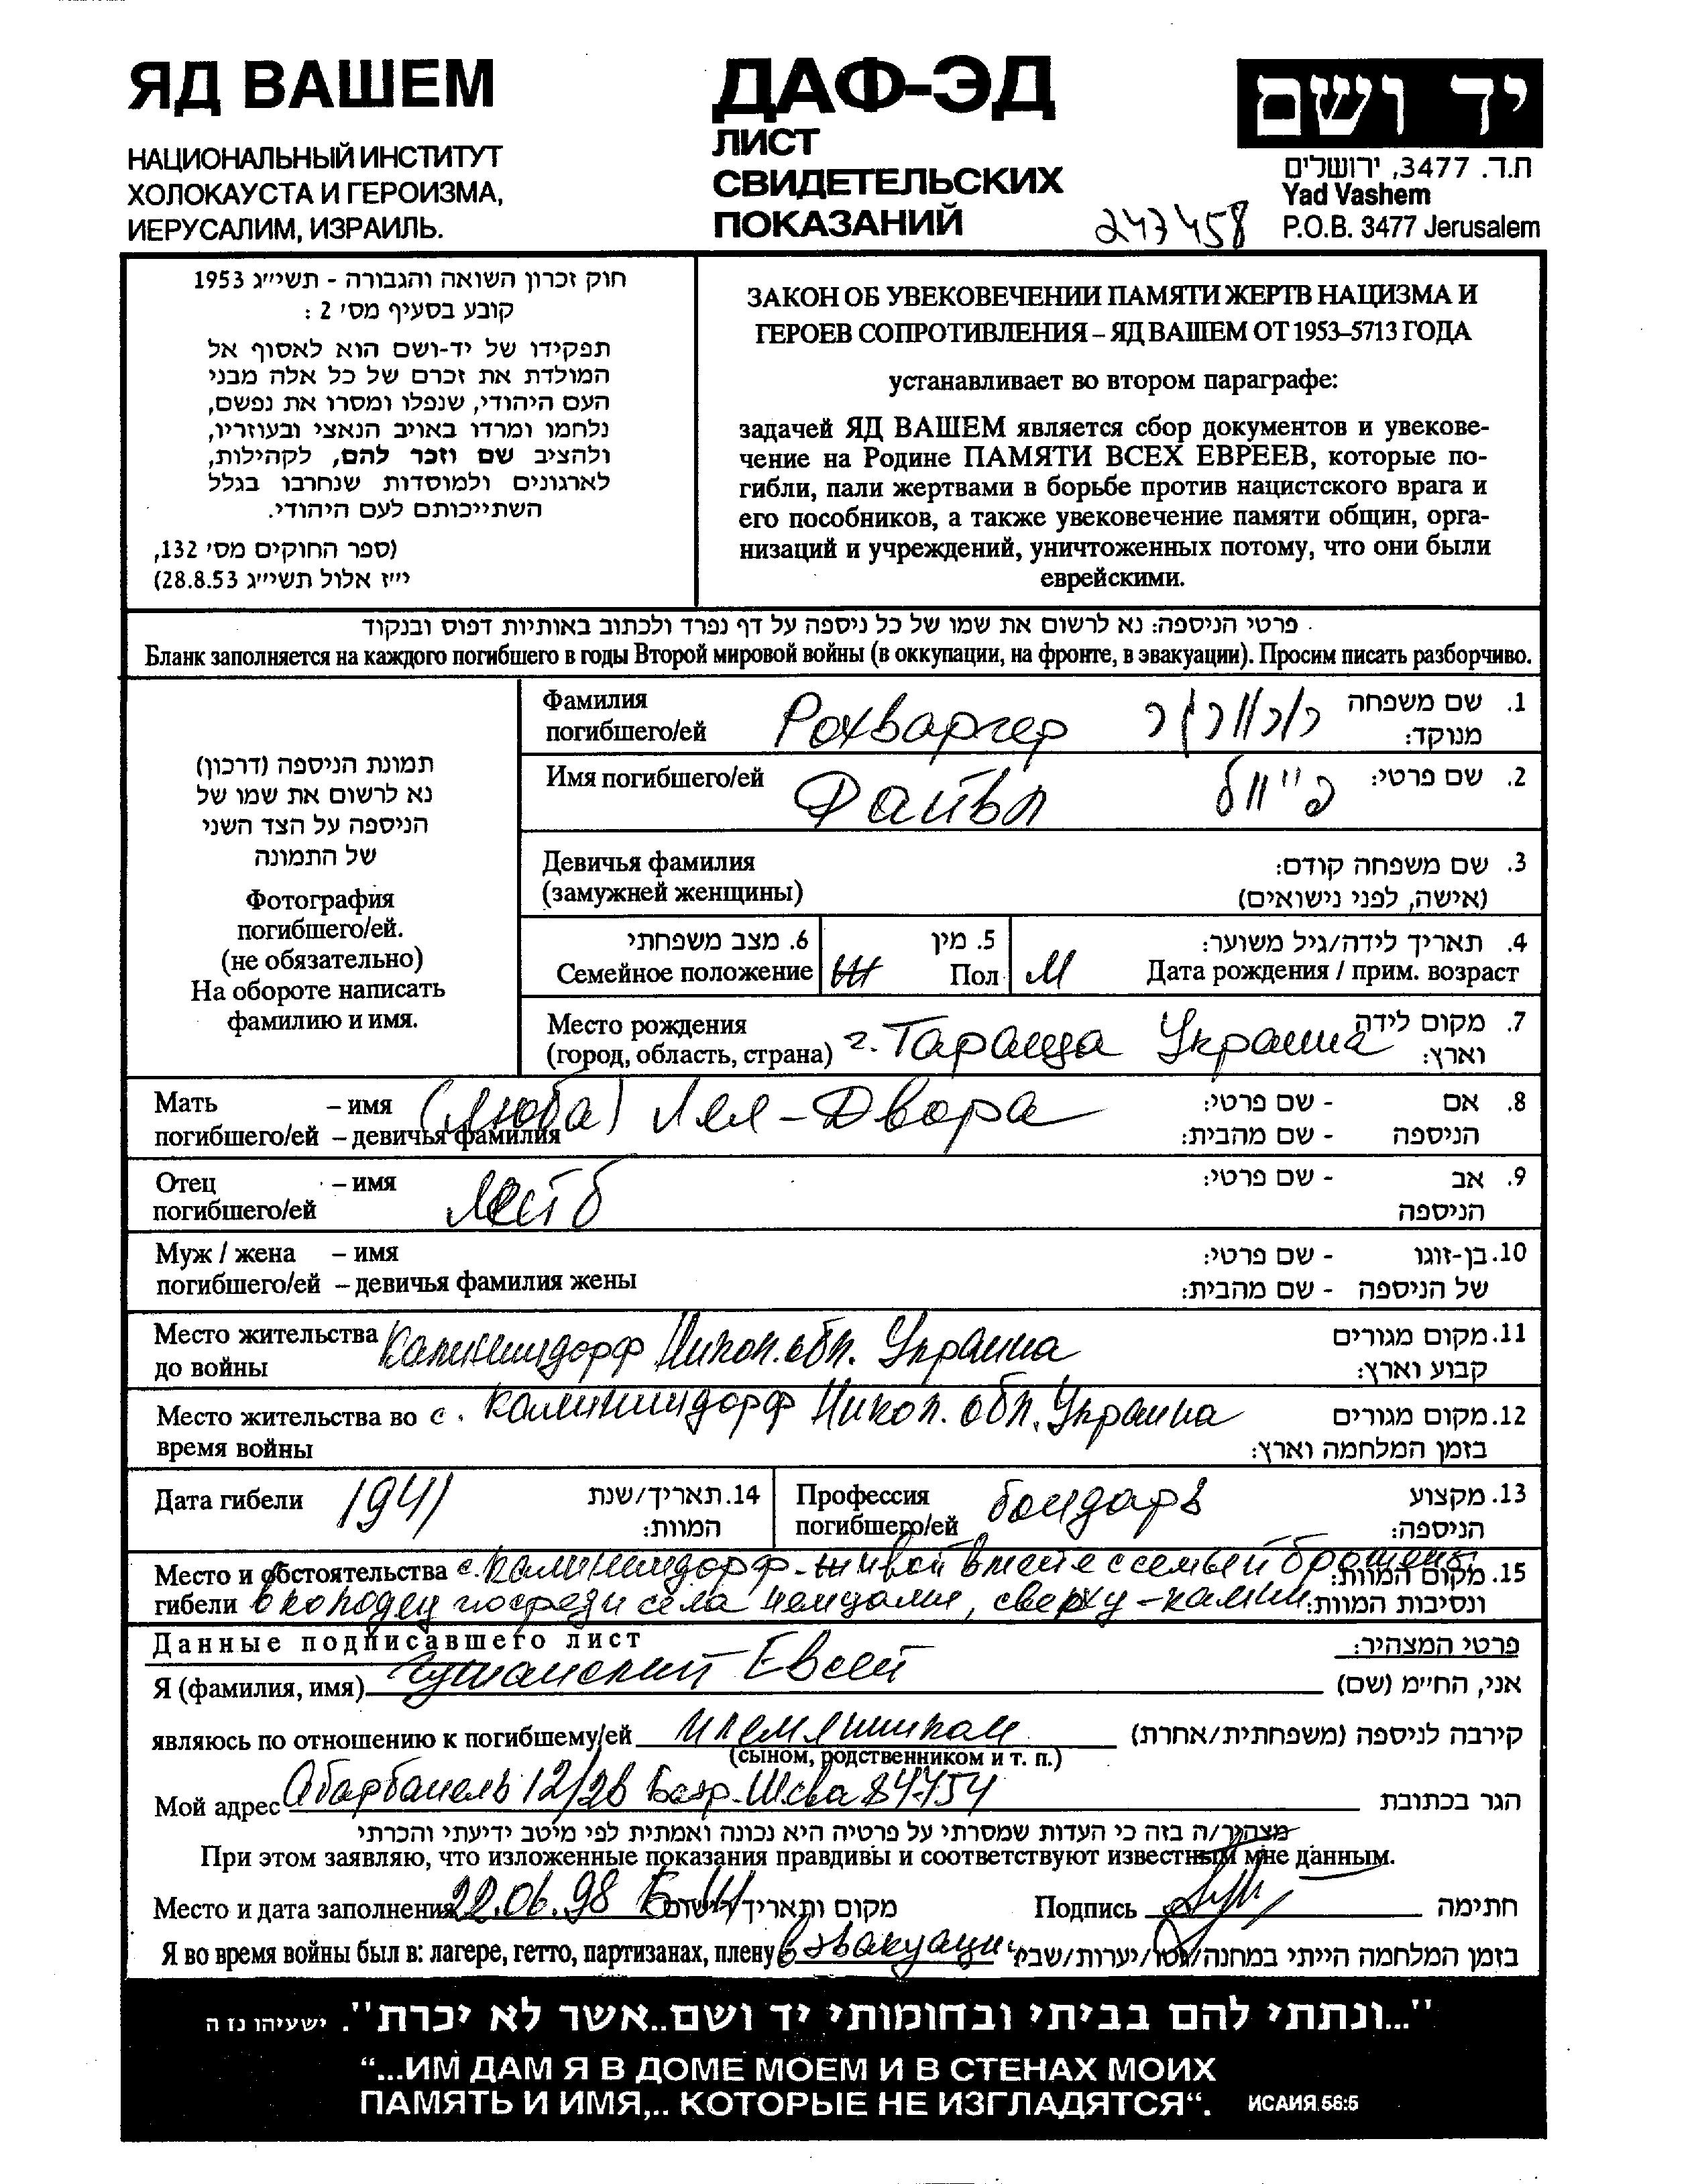 ЯД ВАШЕМ
НАЦИОНАЛЬНЫЙ ИНСТИТУТ
ХОЛОКАУСТА И ГЕРОИЗМА,
ИЕРУСАЛИМ, ИЗРАИЛЬ.
ДАФ-ЭД
ЛИСТ
СВИДЕТЕЛЬСКИХ
ПОКАЗАНИЙ
247458
יד ושם
ת.ד. 3477, ירושלים
Yad Vashem
P.O.B. 3477 Jerusalem
חוק זכרון השואה והגבורה - תשי״ג 1953
קובע בסעיף מס' 2 :
תפקידו של יד-ושם הוא לאסוף אל
המולדת את זכרם של כל אלה מבני
העם היהודי, שנפלו ומסרו את נפשם,
נלחמו ומרדו באויב הנאצי ובעוזריו,
ולהציב שם וזכר להם, לקהילות,
לארגונים ולמוסדות שנחרבו בגלל
השתייכותם לעם היהודי.
(ספר החוקים מס' 132,
י״ז אלול תשי״ג 28.8.53)
ЗАКОН ОБ УВЕКОВЕЧЕНИИ ПАМЯТИ ЖЕРТВ НАЦИЗМА И
ГЕРОЕВ СОПРОТИВЛЕНИЯ – ЯД ВАШЕМ ОТ 1953–5713 ГОДА
устанавливает во втором параграфе:
задачей ЯД ВАШЕМ является сбор документов и увекове-
чение на Родине ПАМЯТИ ВСЕХ ЕВРЕЕВ, которые по-
гибли, пали жертвами в борьбе против нацистского врага и
его пособников, а также увековечение памяти общин, орга-
низаций и учреждений, уничтоженных потому, что они были
еврейскими.
פרטי הניספה: נא לרשום את שמו של כל ניספה על דף נפרד ולכתוב באותיות דפוס ובנקוד
Бланк заполняется на каждого погибшего в годы Второй мировой войны (в оккупации, на фронте, в эвакуации). Просим писать разборчиво.
תמונת הניספה (דרכון)
נא לרשום את שמו של
הניספה על הצד השני
של התמונה
Фотография
погибшего/ей.
(не обязательно)
На обороте написать
фамилию и имя.
Фамилия
погибшего/ей Рохваргер
1. שם משפחה
מנוקד:
Имя погибшего/ей Файвл פייוול 2. שם פרטי:
Девичья фамилия
(замужней женщины)
3. שם משפחה קודם:
(אישה, לפני נישואים)
6. מצב משפחתי
Семейное положение
5. מין
Пол М
4. תאריך לידה/גיל משוער:
Дата рождения / прим. возраст
Место рождения
(город, область, страна) г. Тараща Украина
7. מקום לידה
וארץ:
Мать – имя (Люба) Лея-Двора
погибшего/ей – девичья фамилия
8. אם - שם פרטי:
הניספה - שם מהבית:
Отец – имя
погибшего/ей Лейб
9. אב - שם פרטי:
הניספה
Муж / жена – имя
погибшего/ей – девичья фамилия жены
10. בן-זוגו - שם פרטי:
של הניספה - שם מהבית:
Место жительства
до войны Калининдорф Никол. обл. Украина
11. מקום מגורים
קבוע וארץ:
Место жительства во
время войны с. Калининдорф Никол. обл. Украина
12. מקום מגורים
בזמן המלחמה וארץ:
Дата гибели 1941
14. תאריך/שנת
המוות:
Профессия
погибшего/ей бондарь
13. מקצוע
הניספה:
Место и обстоятельства с. Калининдорф - живой вместе с семьей брошены
гибели в колодец посреди села немцами, сверху - камни
15. מקום המוות:
ונסיבות המוות:
Данные подписавшего лист
פרטי המצהיר:
Я (фамилия, имя) Гуманский Евсей אני, החי״מ (שם)
являюсь по отношению к погибшему/ей племянником קירבה לניספה (משפחתית/אחרת)
(сыном, родственником и т. п.)
Мой адрес Абарбанель 12/26 Беэр-Шева 84754 הגר בכתובת
מצהיר/ה בזה כי העדות שמסרתי על פרטיה היא נכונה ואמתית לפי מיטב ידיעתי והכרתי
При этом заявляю, что изложенные показания правдивы и соответствуют известным мне данным.
Место и дата заполнения 22.06.98 Б-Ш מקום ותאריך רישום Подпись חתימה
Я во время войны был в: лагере, гетто, партизанах, плену в эвакуации בזמן המלחמה הייתי במחנה/גטו/יערות/שבי
"...ונתתי להם בביתי ובחומותי יד ושם..אשר לא יכרת". ישעיהו נז ה
“...ИМ ДАМ Я В ДОМЕ МОЕМ И В СТЕНАХ МОИХ
ПАМЯТЬ И ИМЯ,.. КОТОРЫЕ НЕ ИЗГЛАДЯТСЯ“. ИСАИЯ 56:5